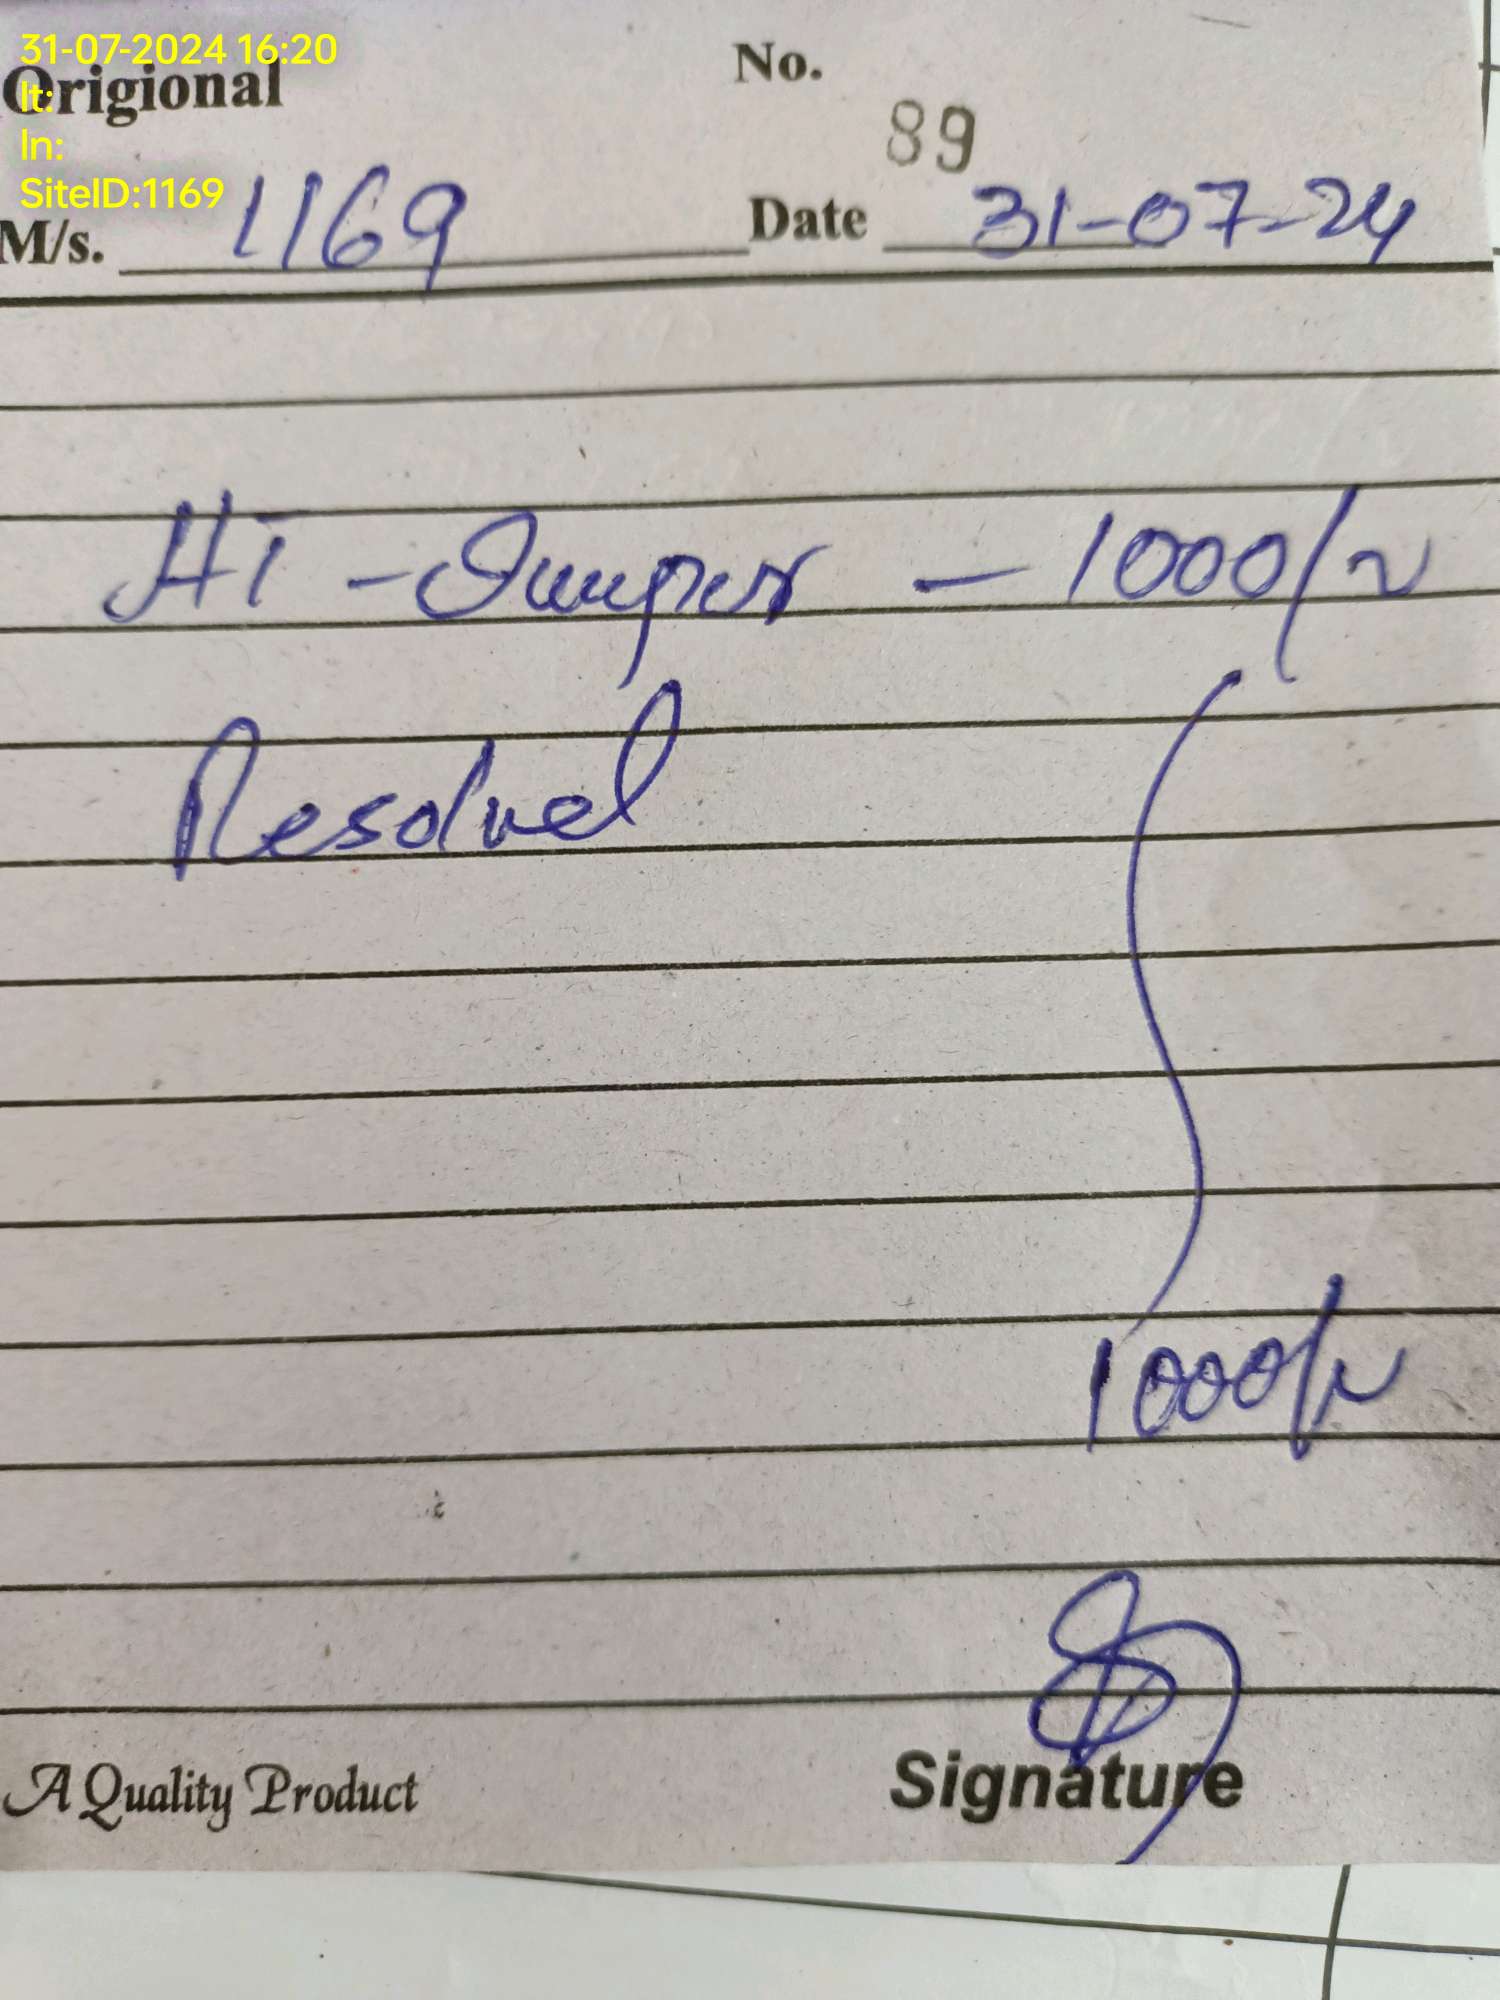 31-07-2024 16:20
Origional
No.
lt:
In:
89
SiteID:1169
M/s. 1169
Date 31-07-24
HT - Jumper - 1000/~
Resolved
1000/~
A Quality Product
Signature